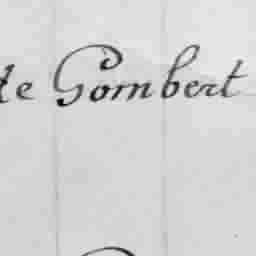 de Gombert